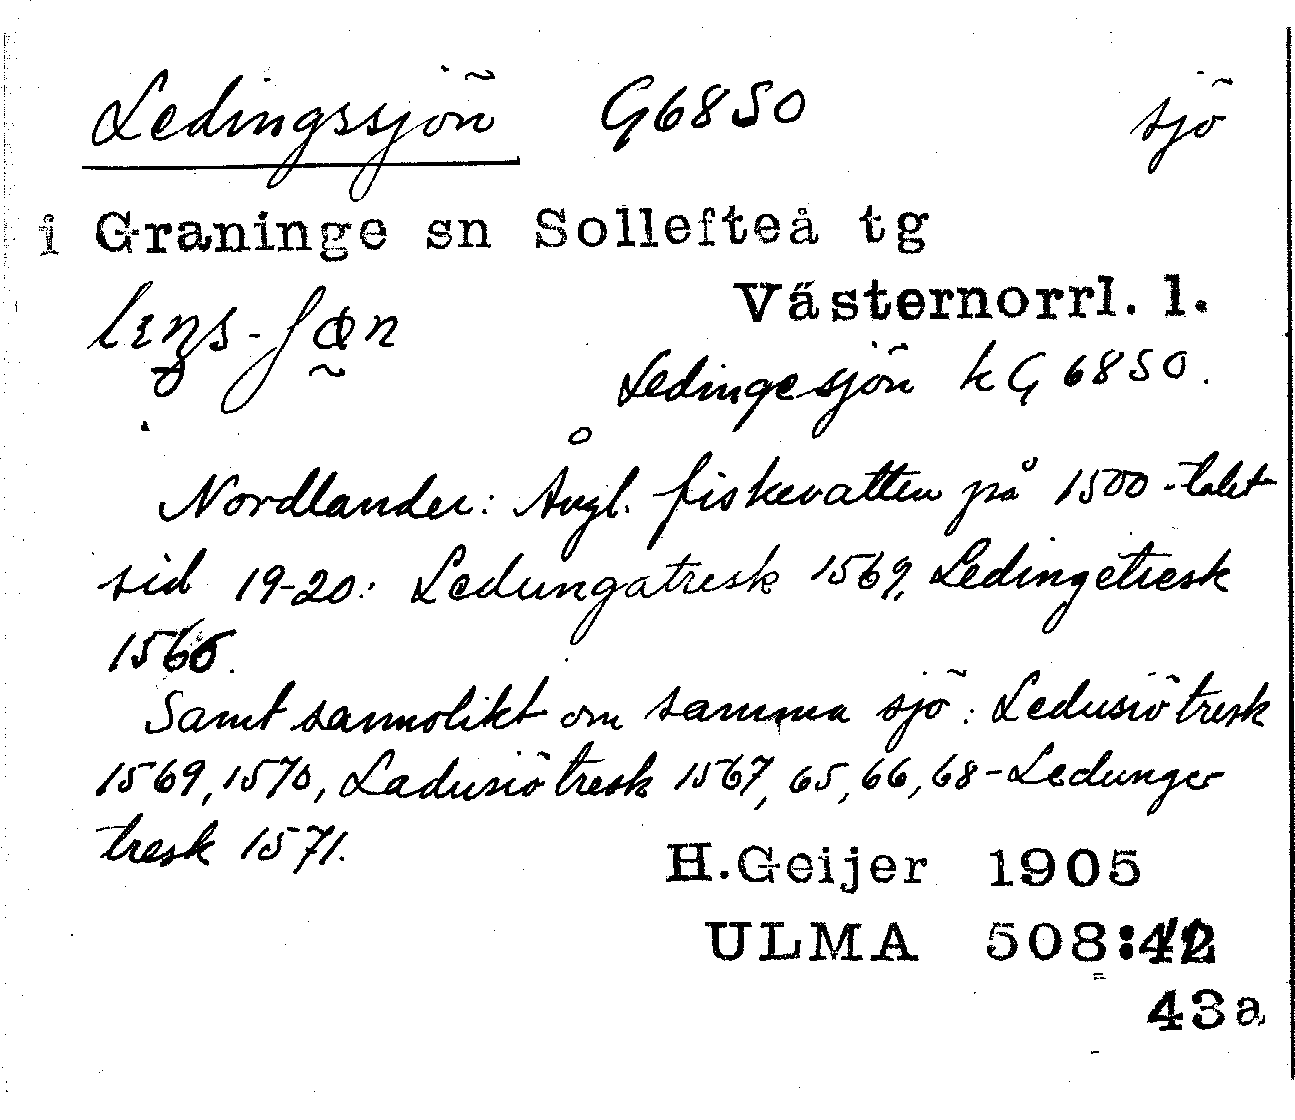 Ledingssjön G6850 sjö
i Graninge sn Sollefteå tg
Västernorrl. l.
Ledingesjön k G 6850.
Nordlander: Ångl. fiskevatten på 1500-talet
sid 19-20: Ledungatresk 1569, Ledingetresk
1566.
Samt sannolikt om samma sjö: Ledusiötresk
1569, 1570, Ladusiötresk 1567, 65, 66, 68 - Ledunger
tresk 1571.
H.Geijer 1905
ULMA 508:42
43a